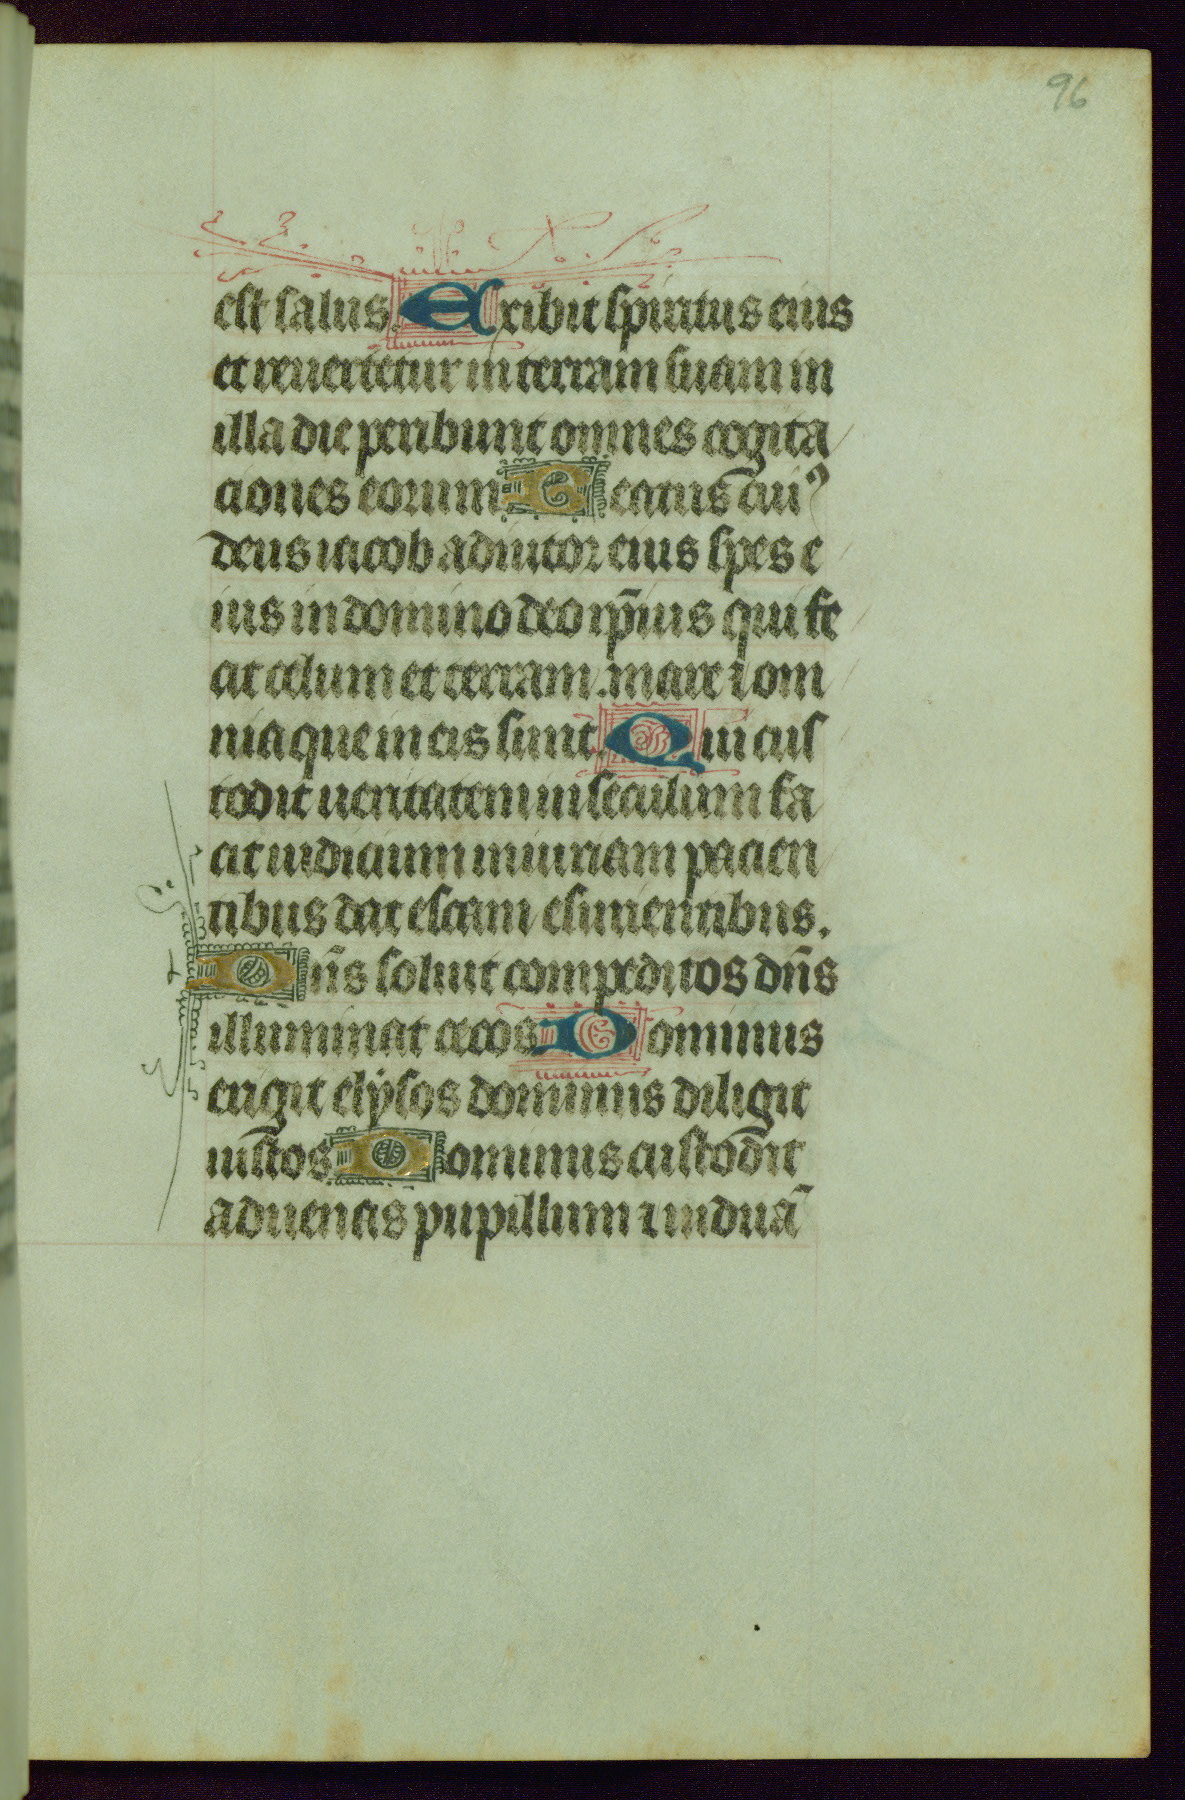 96
est salus. Exibit spiritus eius
et reuertetur in terram suam in
illa die peribunt omnes cogita
ciones eorum. Beatus cuiꝰ
deus iacob adiutor eius spes e
ius in domino deo ip̄ius qui fe
cit celum et terram. mare ⁊ om
nia que in eis sunt. Qui cus
todit ueritatem in seculum fa
cit iudicium iniuriam pacien
tibus dat escam esurientibus.
Dn̄s soluit compeditos dn̄s
illuminat cecos Dominus
erigit elysos dominus diligit
iustos Dominus custodit
aduenas pupillum ⁊ uiduā